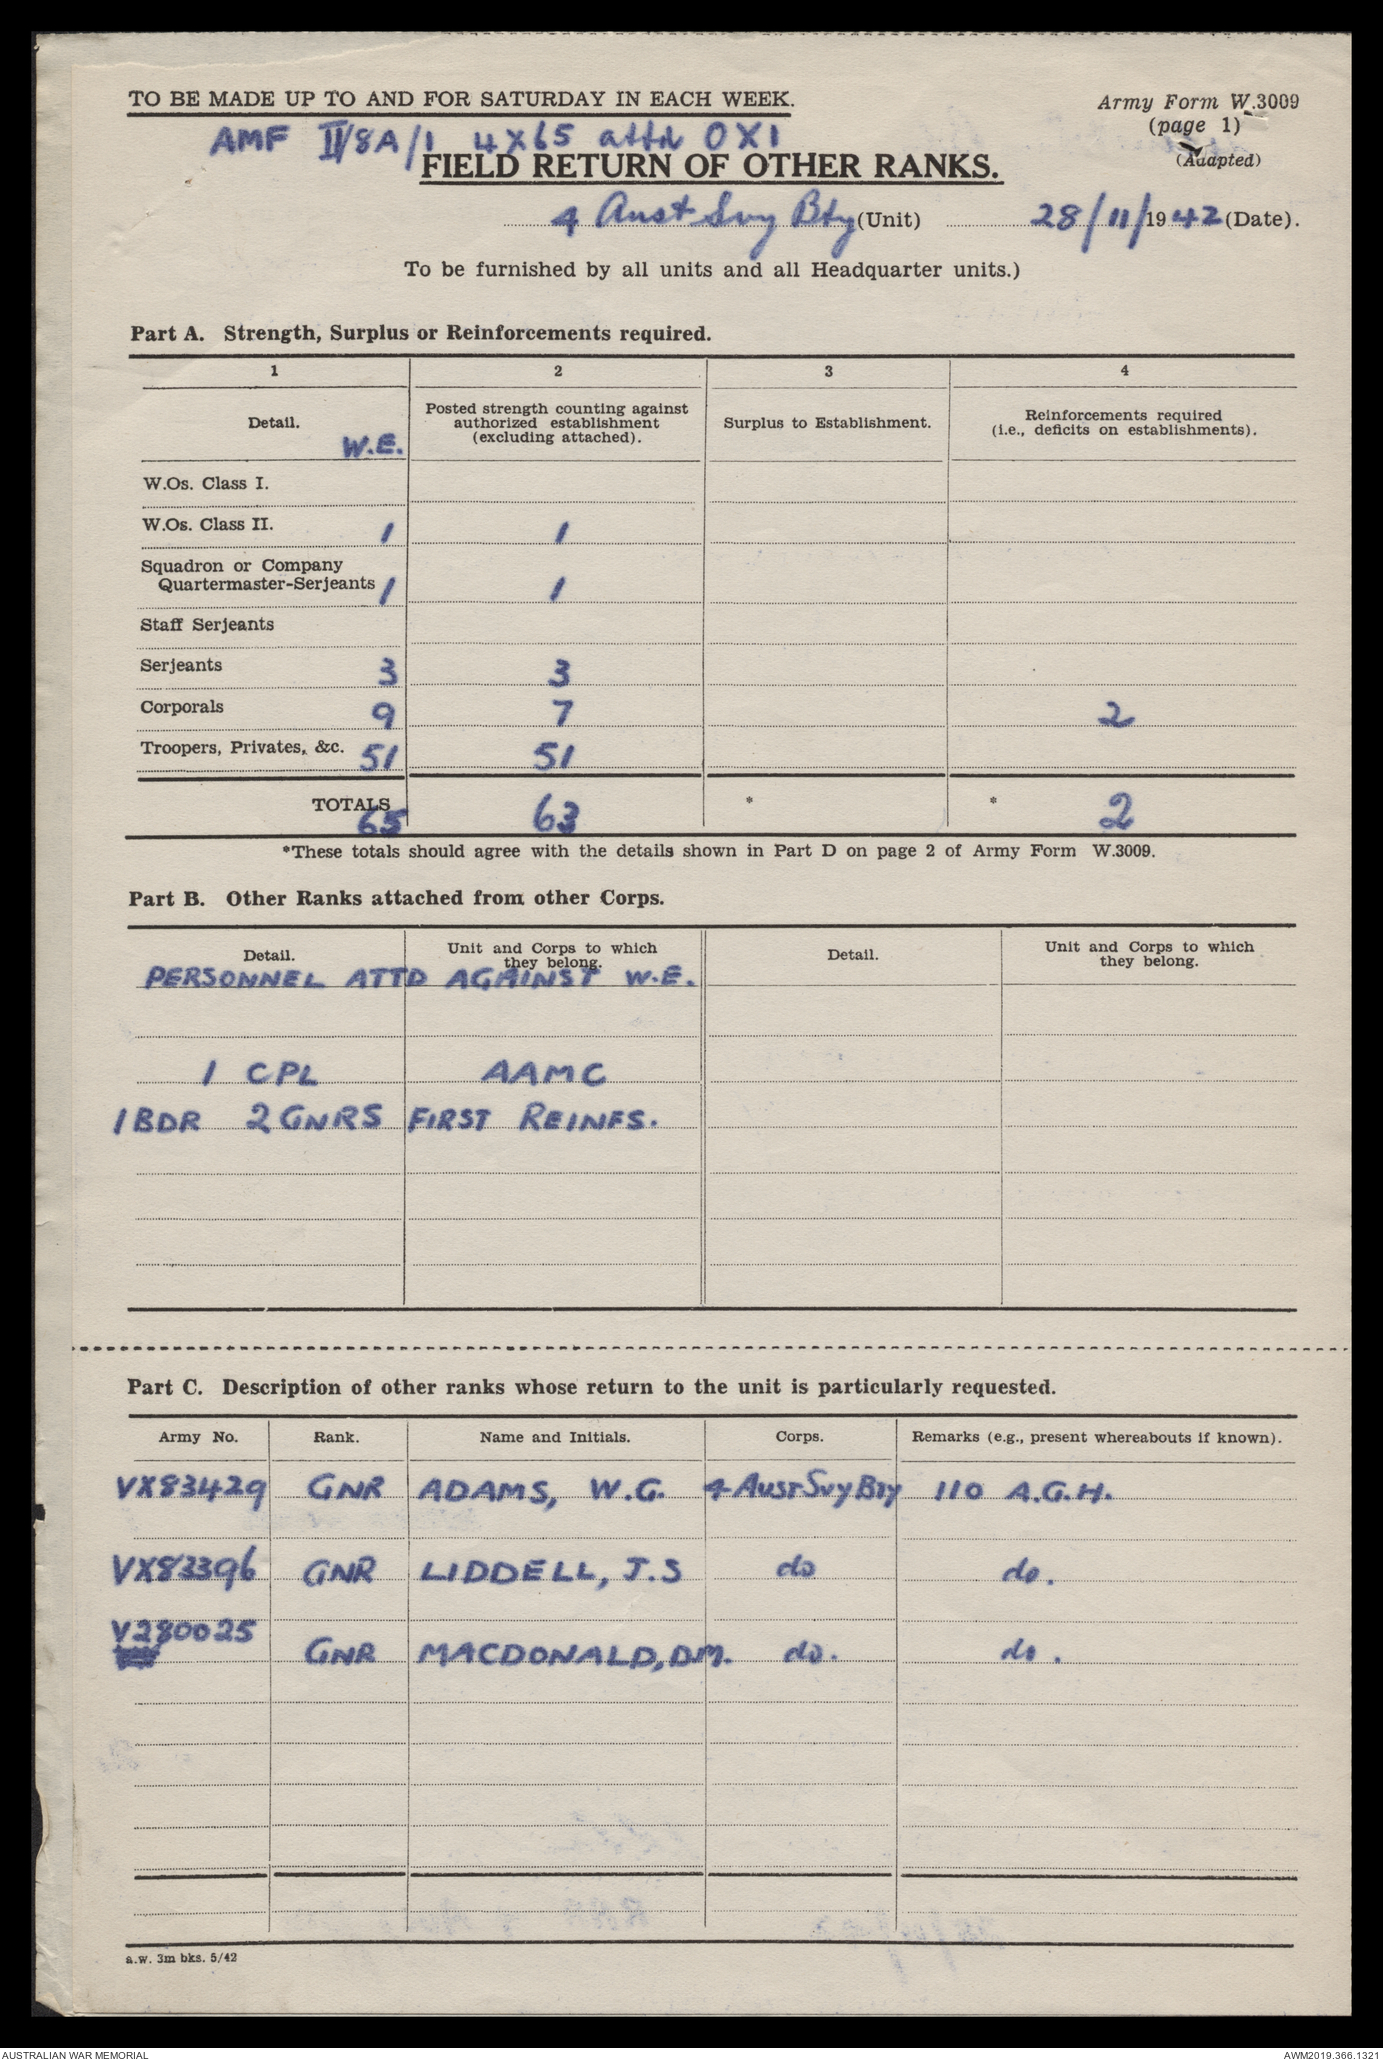 TO BE MADE UP TO AND FOR SATURDAY IN EACH WEEK.
Army Form W.3009
(page 1)
(Adapted)
AMF II/8A/1 4X65 attd OX1
FIELD RETURN OF OTHER RANKS.
4 Aust Svy Bty (Unit) 28/11/1942 (Date).
To be furnished by all units and all Headquarter units.)
Part A. Strength, Surplus or Reinforcements required.
1 2 3 4
Detail. W.E. Posted strength counting against authorized establishment (excluding attached). Surplus to Establishment. Reinforcements required (i.e., deficits on establishments).
W.Os. Class I.
W.Os. Class II. 1 1
Squadron or Company
Quartermaster-Serjeants 1 1
Staff Serjeants
Serjeants 3 3
Corporals 9 7 2
Troopers, Privates, &c. 51 51
TOTALS 65 63 * * 2
*These totals should agree with the details shown in Part D on page 2 of Army Form W.3009.
Part B. Other Ranks attached from other Corps.
Detail. Unit and Corps to which they belong. Detail. Unit and Corps to which they belong.
PERSONNEL ATTD AGAINST W.E.
1 CPL AAMC
1 BDR 2 GNRS FIRST REINFS.
Part C. Description of other ranks whose return to the unit is particularly requested.
Army No. Rank. Name and Initials. Corps. Remarks (e.g., present whereabouts if known).
VX83429 GNR ADAMS, W.G. 4 Aust Svy Bty 110 A.G.H.
VX83396 GNR LIDDELL, J.S do do.
V280025 GNR MACDONALD, D.M. do. do.
a.w. 3m bks. 5/42
AUSTRALIAN WAR MEMORIAL
AWM2019.366.1321